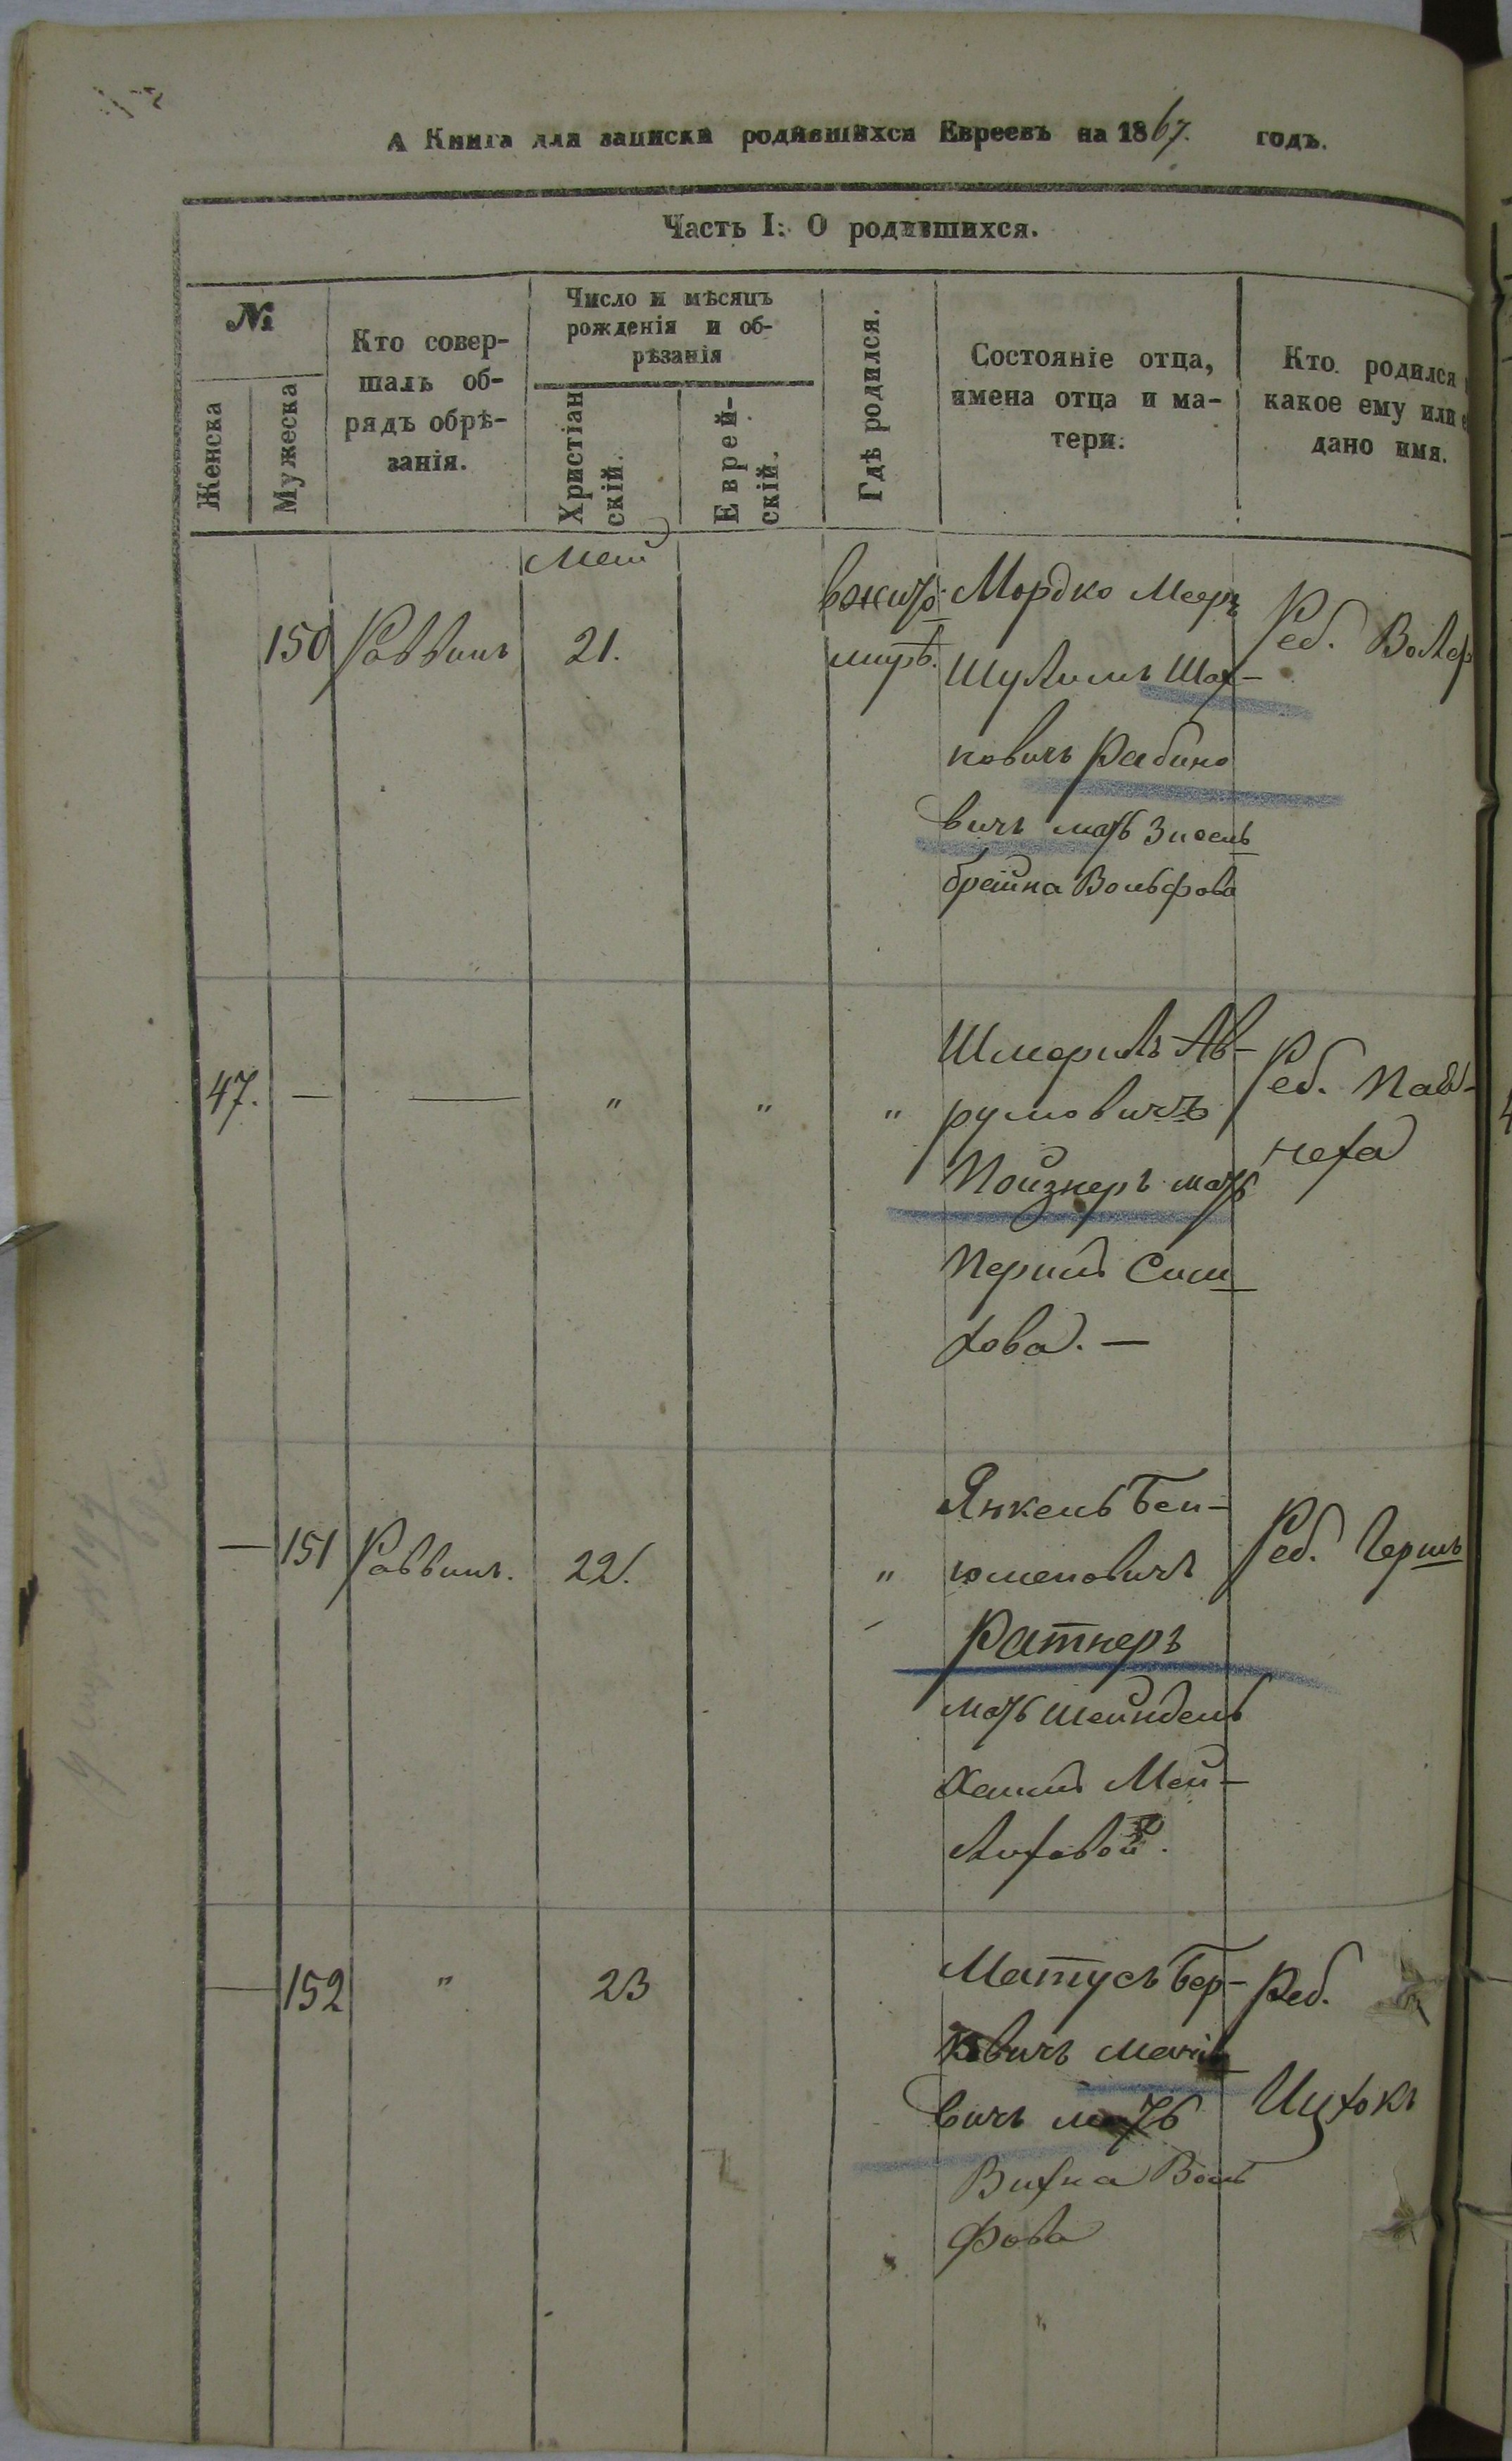 А Книга для записки родившихся Евреевъ на 1867. годъ.
Часть I: О родившихся.
№
Женска
Мужеска
Кто совер-
шалъ об-
рядъ обрѣ-
занія.
Число и мѣсяцъ
рожденія и об-
рѣзанія
Христіан
скій.
Еврей-
скій.
Гдѣ родился.
Состояніе отца,
имена отца и ма-
тери.
Кто родился
какое ему или
дано имя.
Маій
150 Раввинъ 21.
вжито
миръ.
Мордко Мееръ
Шулимъ
новичъ Рабино
вичъ мать Зисель
брайна Вольфова
Реб. Волф
47. — — " " "
Шмерилъ Ав-
румовичъ
Пойзнеръ мать
Перлъ Сим
хова. —
Реб.
неха
— 151 Раввинъ. 22. "
Янкель Бен-
юменовичъ
Ратнеръ
мать Шейндель
Мей-
лиховой.
Реб. Гершъ
— 152 " 23
Матусъ Бер-
ковичъ
вичъ мать
Вихна Воль
фова
Реб.
Ицхокъ